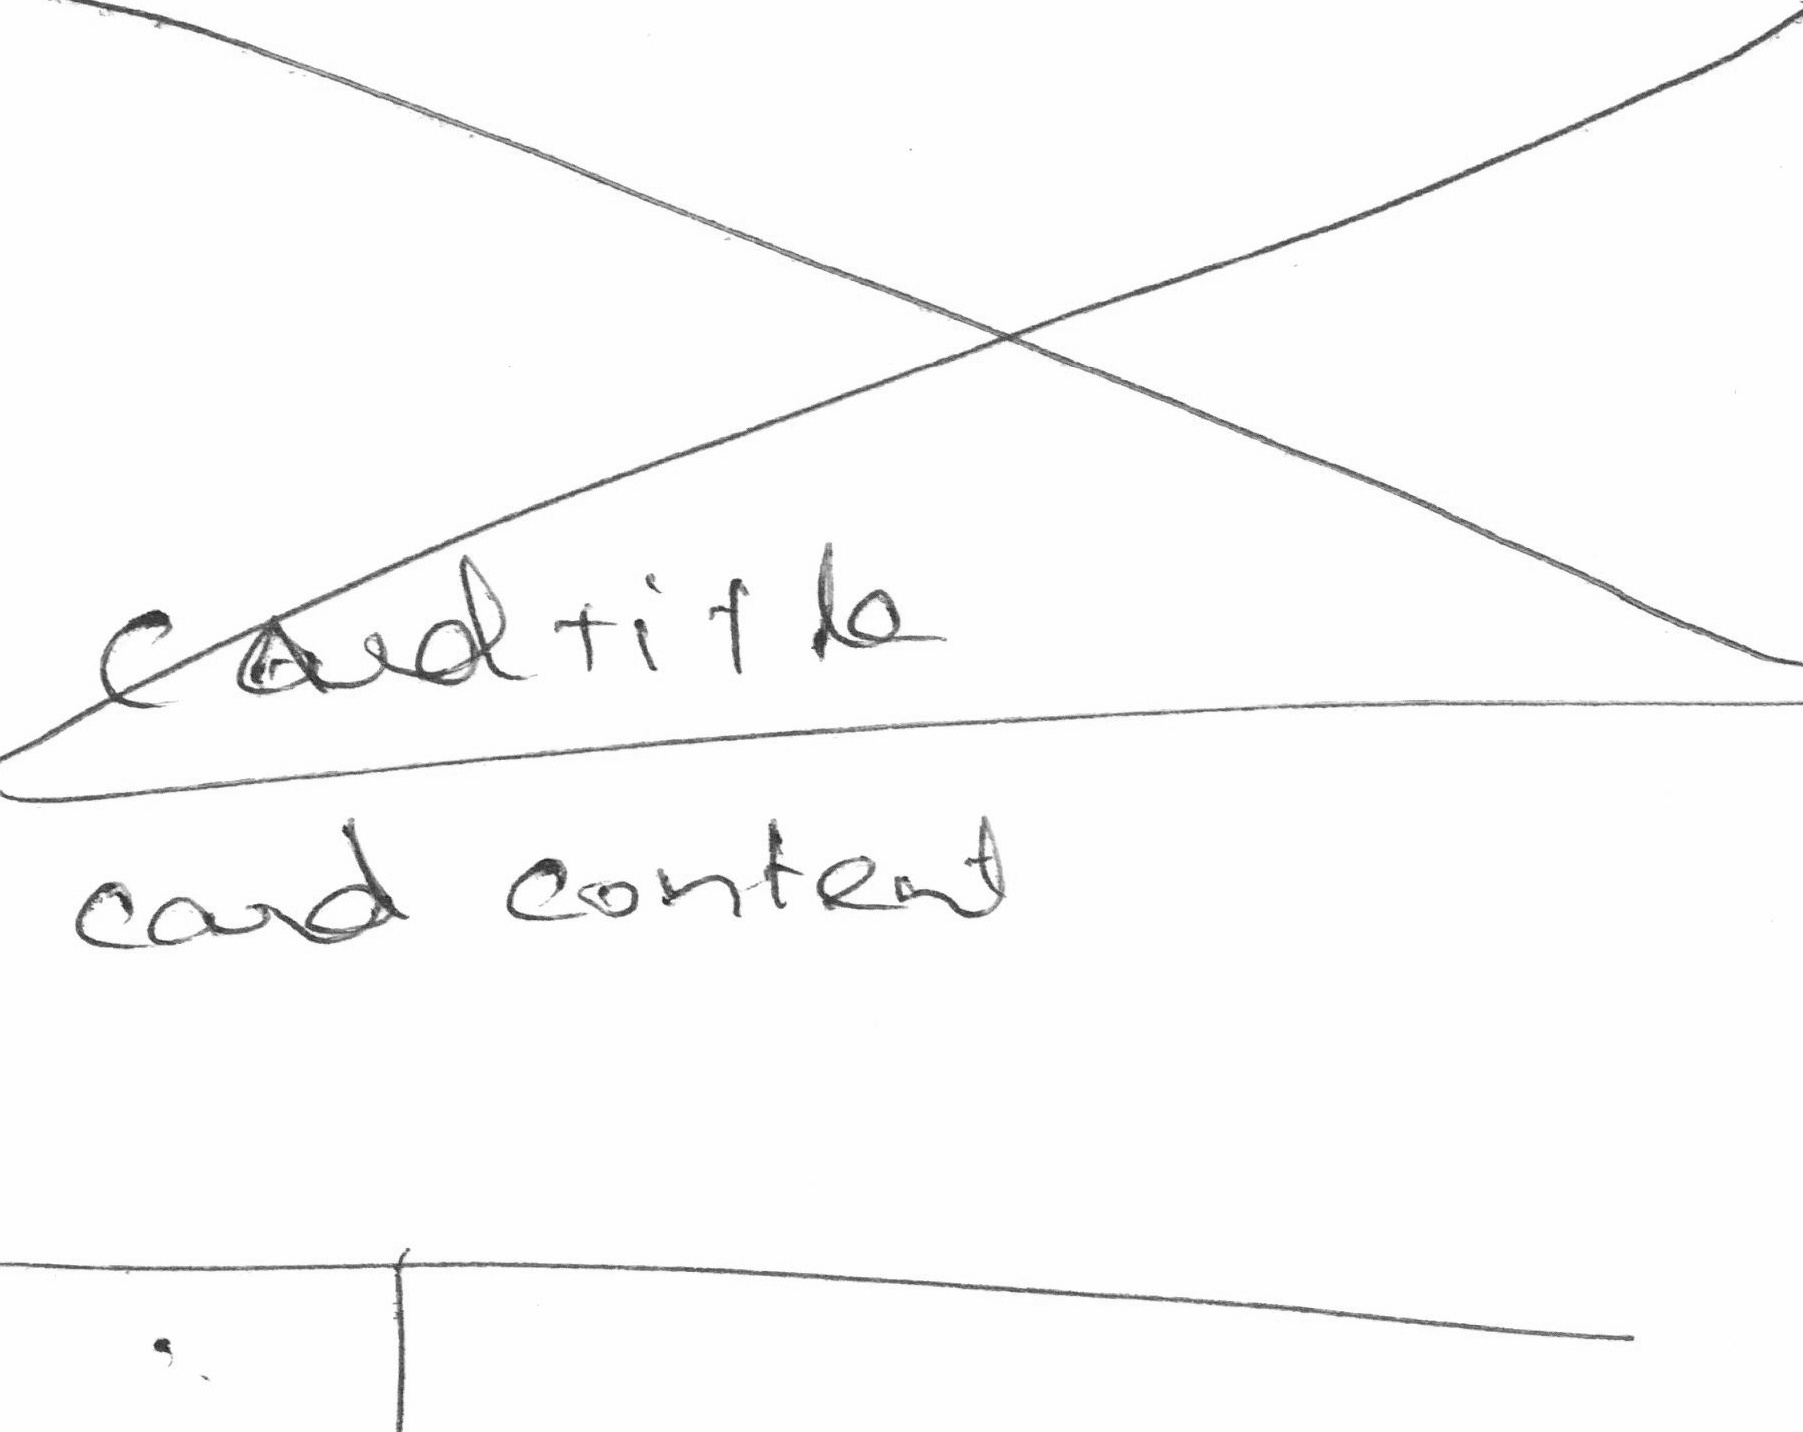 Card title
card content